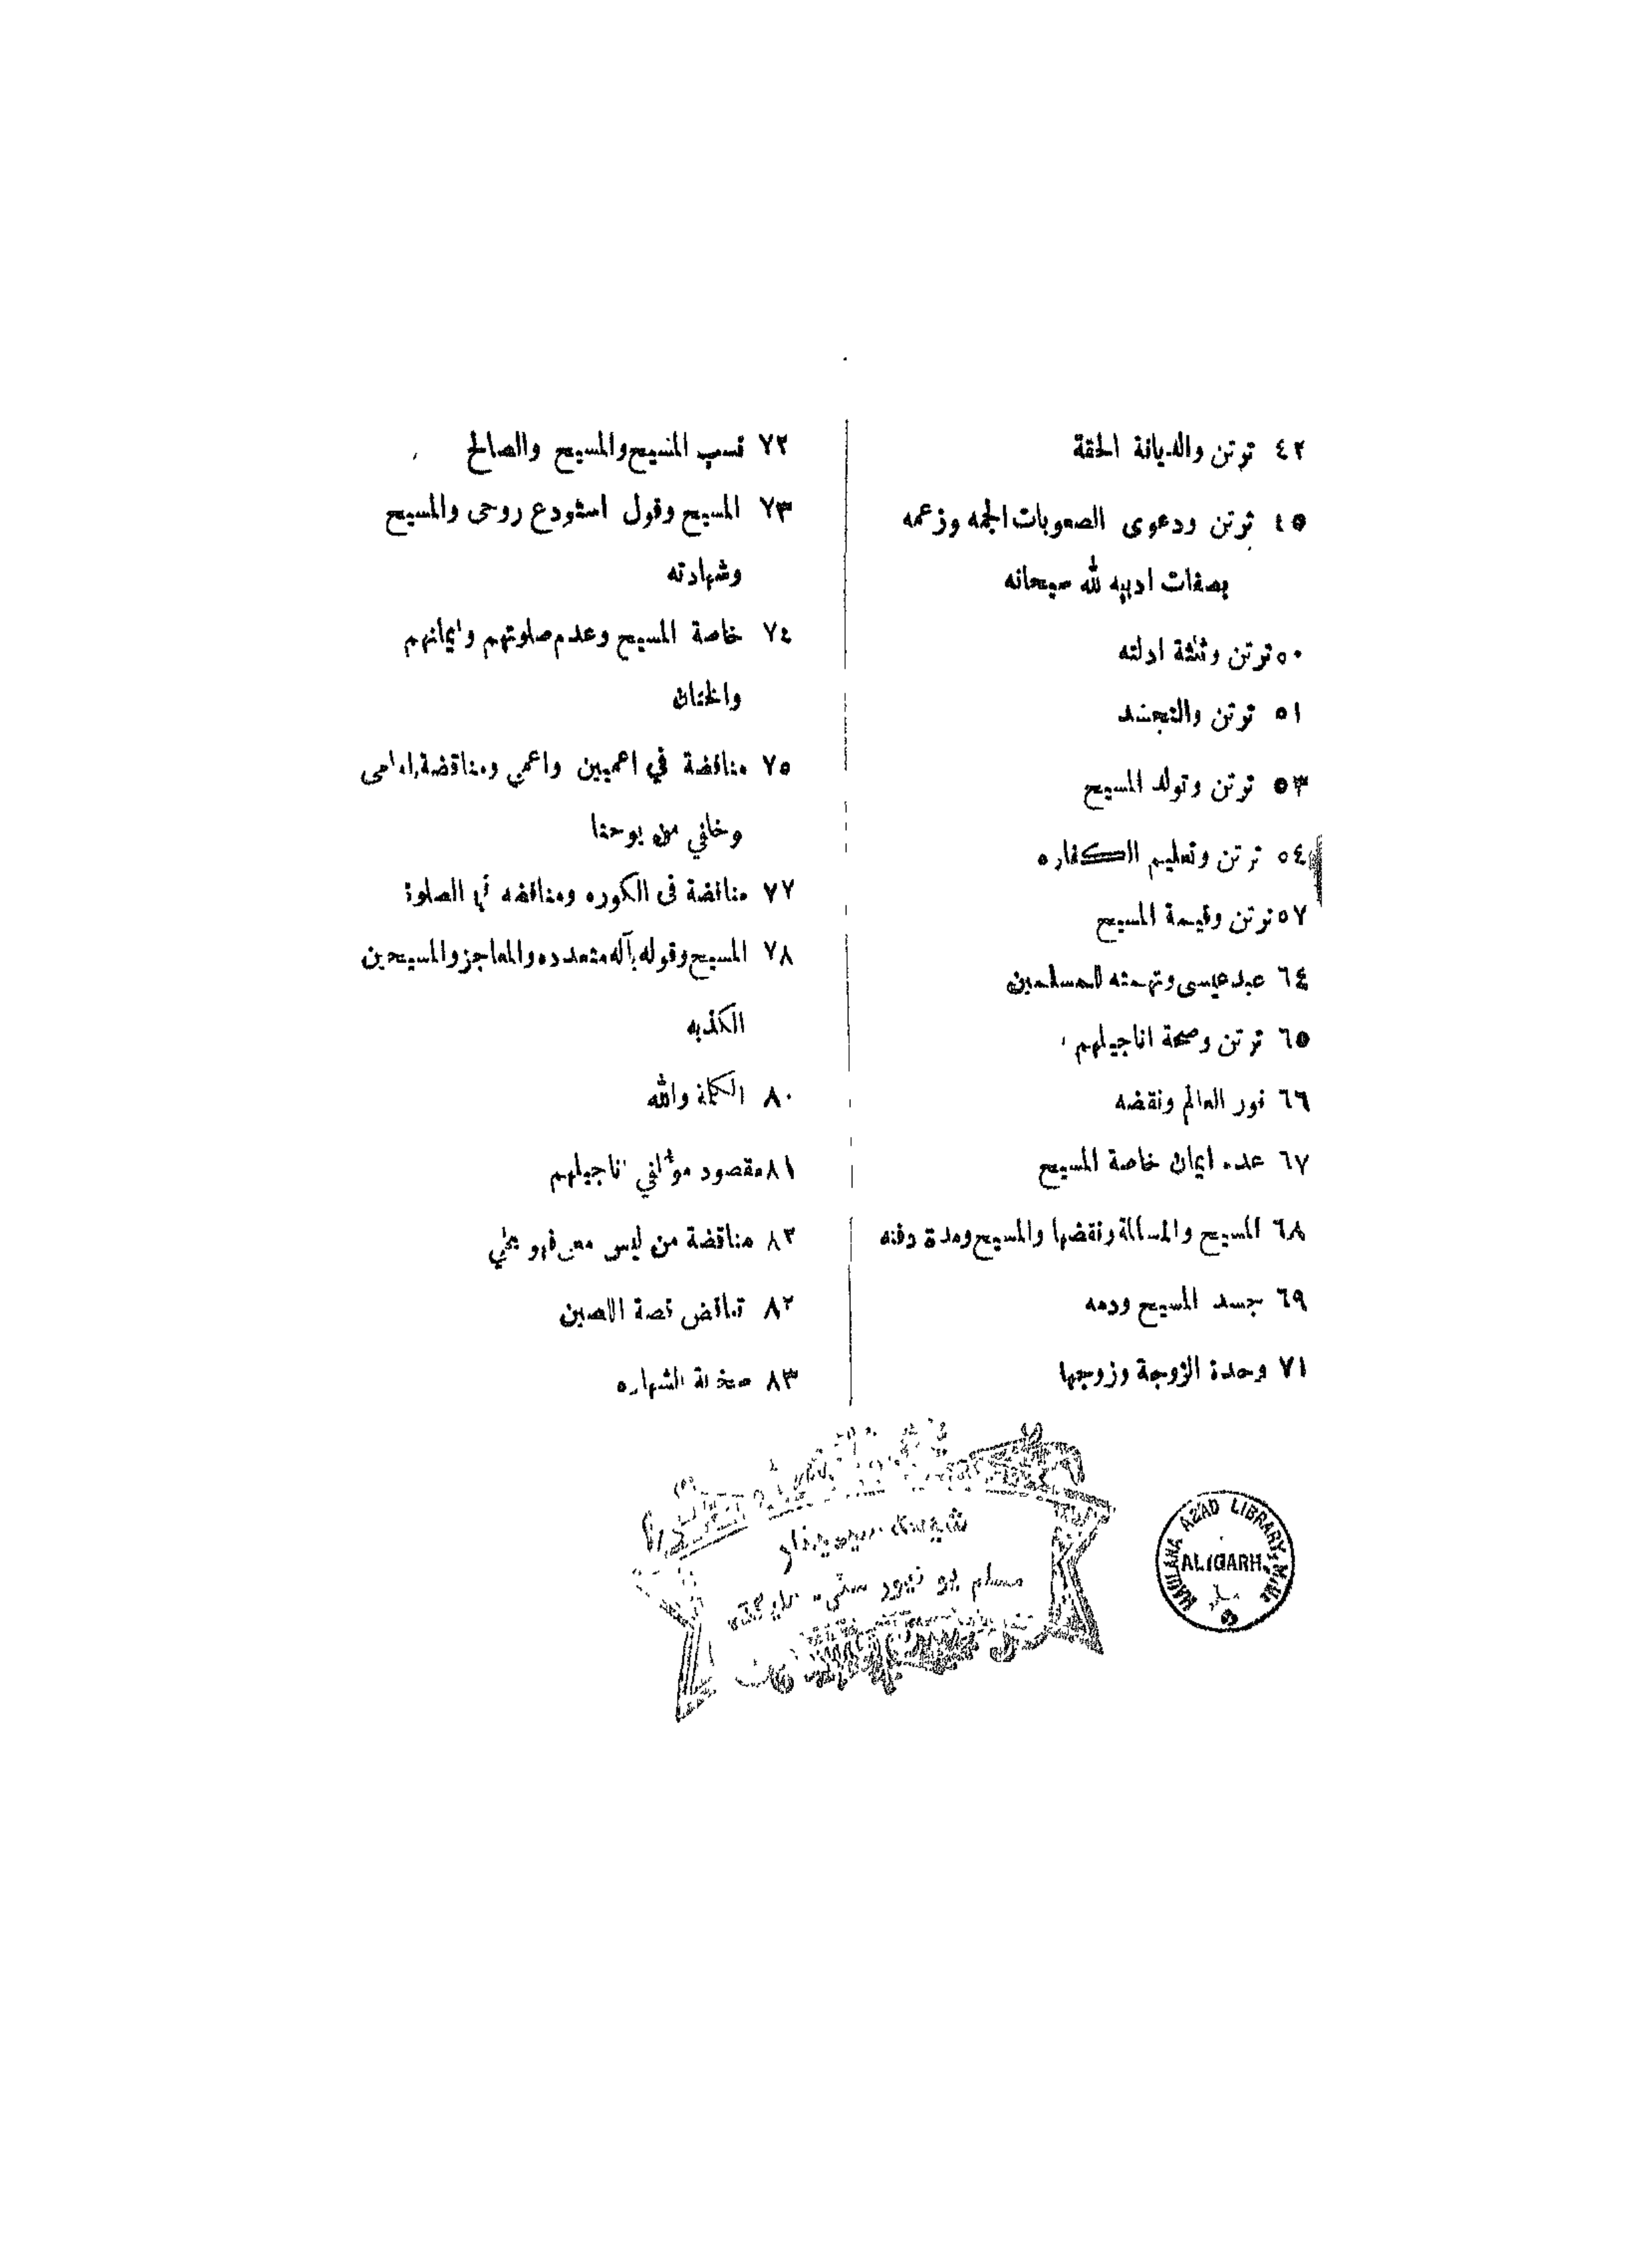 ٤٢ ترتن والديانة الحقة
٤٥ ترتن ودعوى الصعوبات الجمه وزعمه
بصفات ادبيه لله سبحانه
٥٠ ترتن وثلثة ادلته
٥١ ترتن والتجسد
٥٣ ترتن وتولد المسيح
٥٤ ترتن وتعليم الكفاره
٥٧ ترتن وقيمة المسيح
٦٤ عبد عيسى وتهمته للمسلمين
٦٥ ترتن وصحة اناجيلهم
٦٦ نور العالم ونقضه
٦٧ عدم ايمان خاصة المسيح
٦٨ المسيح والمسالة ونقضها والمسيح ومدة دفنه
٦٩ جسد المسيح ودمه
٧١ وحدة الزوجة وزوجها
٧٢ نسب المسيح والمسيح والصالح
٧٣ المسيح وقول استودع روحى والمسيح
وشهادته
٧٤ خاصة المسيح وعدم صلوتهم وايمانهم
والختان
٧٥ مناقضة في اعميين واعمي ومناقضة امامى
وخلفي من يوحنا
٧٧ مناقضة فى الكوره ومناقضه الصلوة
٧٨ المسيح وقوله بآله متعدده والمعاجز والمسيحين
الكذبه
٨٠ الكلمة والله
٨١ مقصود مؤلفي اناجيلهم
٨٢ مناقضة من ليس معى فهو علي
٨٢ تناقض قصة اللصين
٨٣ الشهاره
MAULANA AZAD LIBRARY
ALIGARH
مسلم يونيورسٹی علیگڈھ